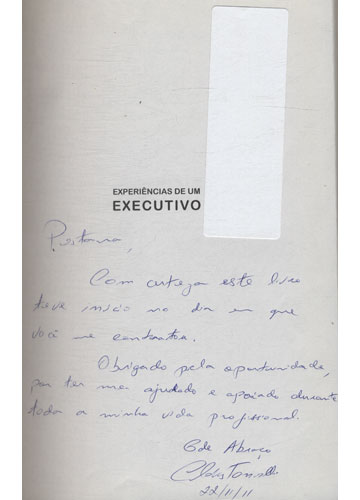 EXPERIÊNCIAS DE UM
EXECUTIVO
Com certeza este livro
teve início no dia em que
você me contratou.
Obrigado pela oportunidade,
por ter me ajudado e apoiado durante
toda a minha vida profissional.
Gde Abraço
22/11/11